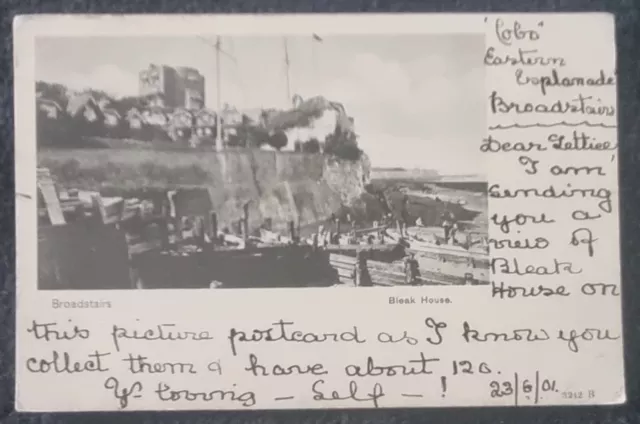 "Cobo"
Eastern
Esplanade
Broadstairs
Dear Lettice
I am
sending
you a
view of
Bleak
House on
Broadstairs
Bleak House.
this picture postcard as I know you
collect them & have about 120.
Yr loving – Self – !
23/6/01.
3242 B